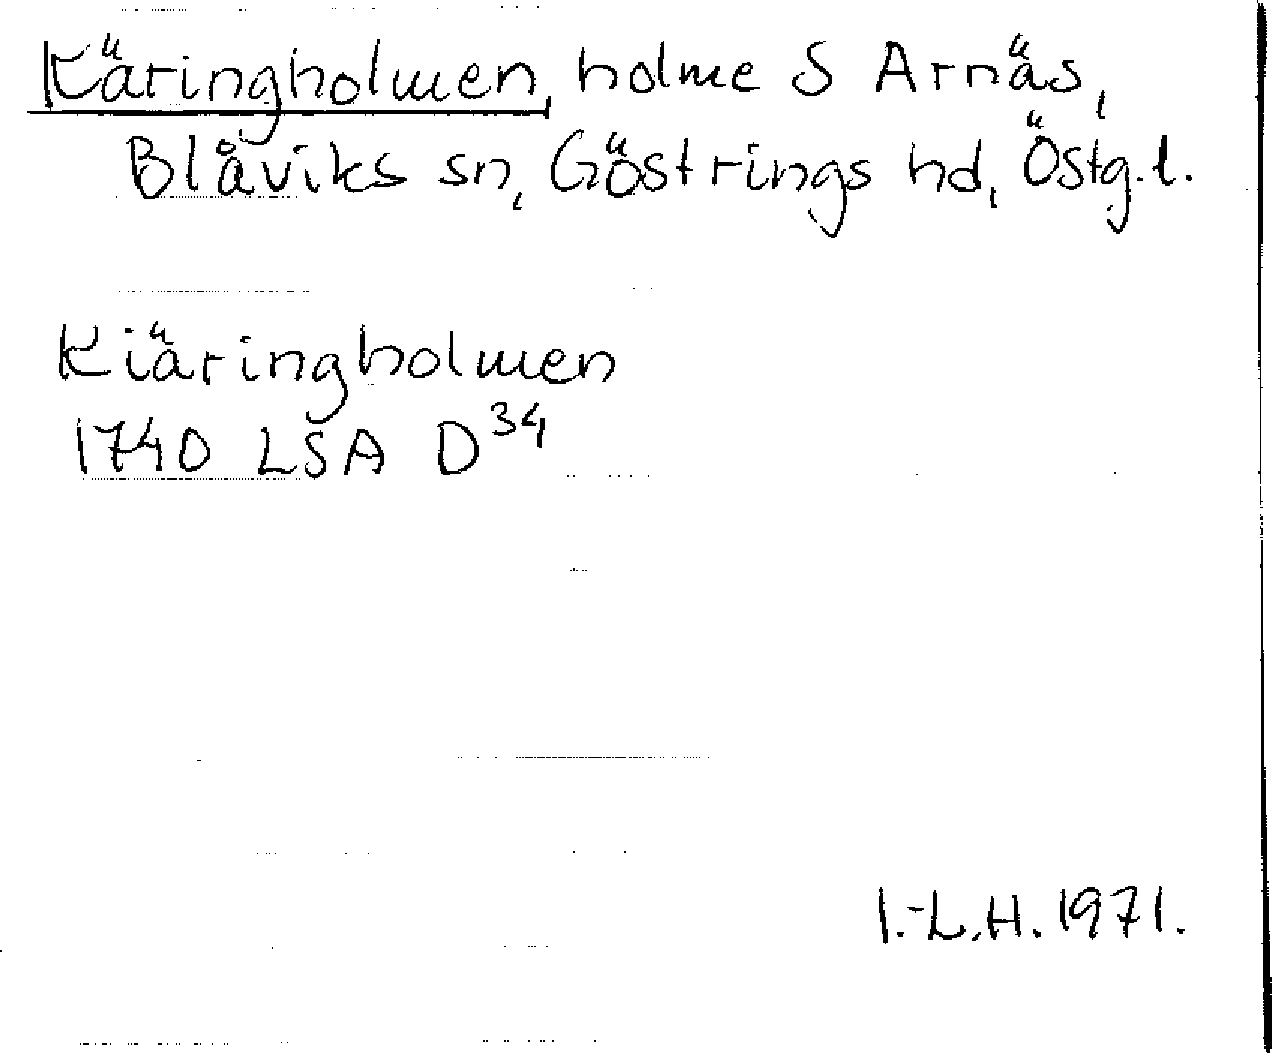 Käringholmen, holme S Arnäs,
Blåviks sn, Göstrings hd, Östg.l.
Kiäringholmen
1740 LSA D³⁴
I.-L.H. 1971.